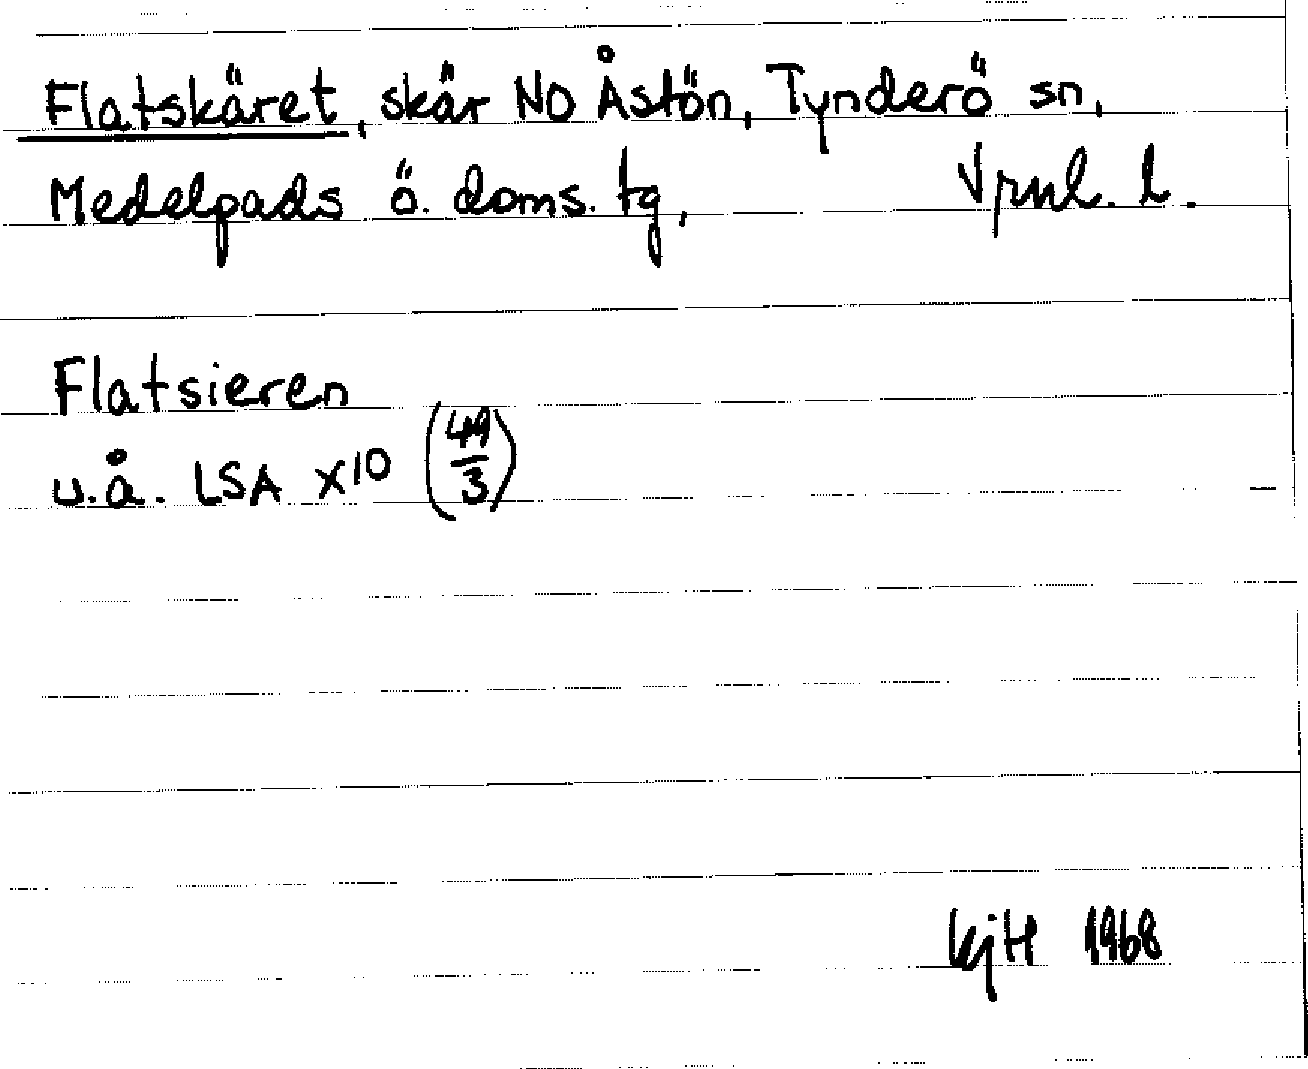 Flatskäret, skär NO Åstön, Tynderö sn,
Medelpads ö. doms. tg, Vrnl. l.
Flatsieren
u.å. LSA X10 (49/3)
KjH 1968